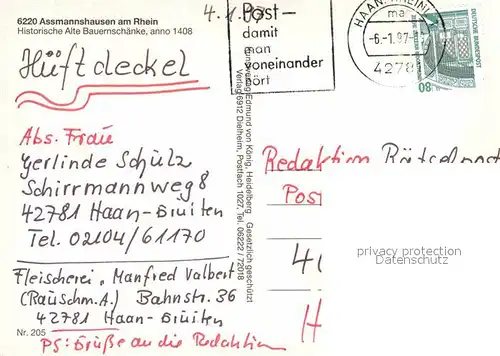 6220 Assmannshausen am Rhein
Historische Alte Bauernschänke, anno 1408
4.1.97
Post-
damit
man
voneinander
hört
HAAN, RHEINL
ma
-6.-1.97-
4278
80
DEUTSCHE BUNDESPOST
Hüftdeckel
Abs. Frau
Gerlinde Schulz
Schirrmannweg 8
42781 Haan-Gruiten
Tel. 02104/61170
Fleischerei „Manfred Valbert
(Rauschm.A.) Bahnstr. 36
42781 Haan-Gruiten
PS: Grüße an die Redaktion
Nr. 205
Kunstverlag Edmund von König, Heidelberg Gesetzlich geschützt
Verlag 6912 Dielheim, Postfach 1027, Tel. 06222 / 72018
Redaktion
Post
4
H
privacy protection
Datenschutz